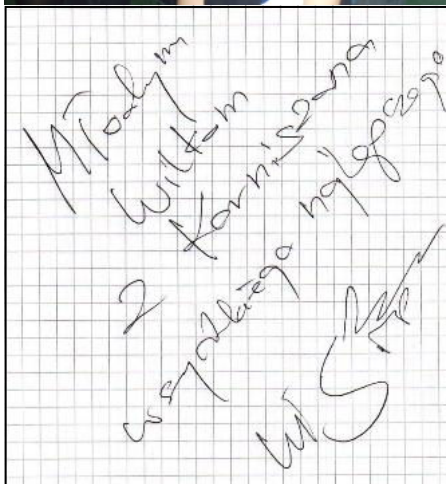 Młodym
Wilkom
z Karniszana
wszystkiego najlepszego